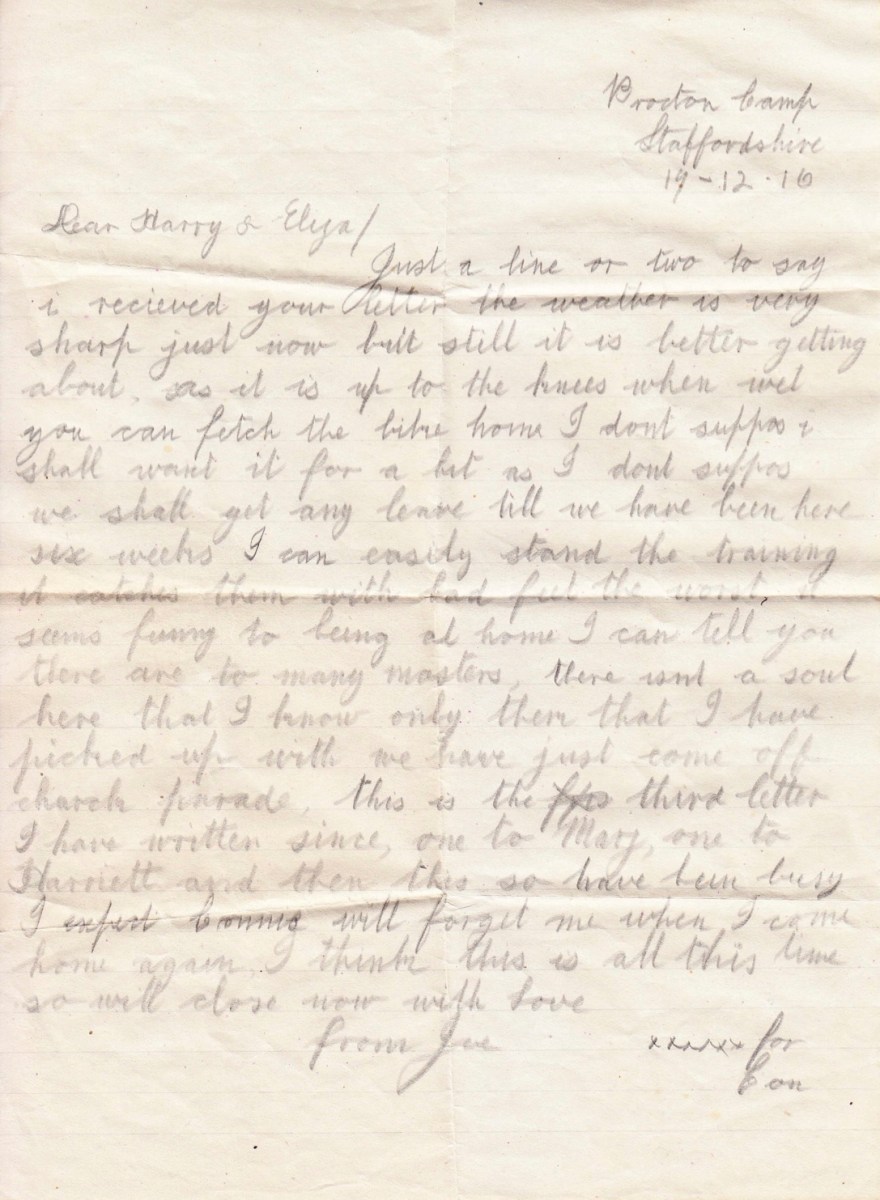 Brocton Camp
Staffordshire
19-12-16
Dear Harry & Elyza/
Just a line or two to say
i recieved your letter the weather is very
sharp just now but still it is better getting
about, as it is up to the knees when wet
you can fetch the bike home I dont suppos i
shall want it for a bit as I dont suppos
we shall get any leave till we have been here
six weeks I can easily stand the training
it catches them with bad feet the worst, it
seems funny to being at home I can tell you
there are to many masters, there isnt a soul
here that I know only them that I have
picked up with we have just come off
church parade, this is the third letter
I have written since, one to Mary, one to
Harriett and then this so have been busy
I expect Connie will forget me when I come
home again, I think this is all this time
so will close now with Love
from Joe
xxxxxx for
Con